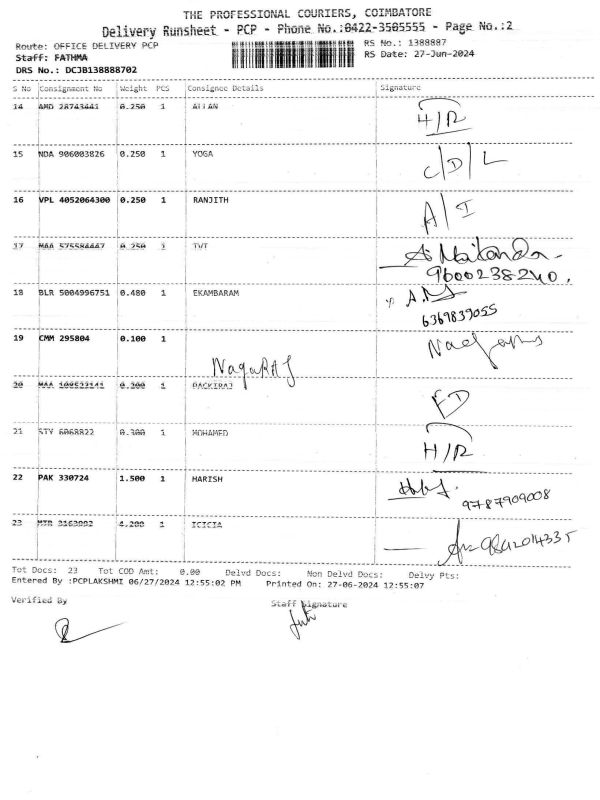 THE PROFESSIONAL COURIERS, COIMBATORE
Delivery Runsheet - PCP - Phone No.:0422-3505555 - Page No.:2
Route: OFFICE DELIVERY PCP RS No.: 1388887
Staff: FATHMA RS Date: 27-Jun-2024
DRS No.: DCJB138888702
S No Consignment No Weight PCS Consignee Details Signature
14 AMD 28743441 0.250 1 ALLAN H/R
15 NDA 906003826 0.250 1 YOGA C/D/L
16 VPL 4052064300 0.250 1 RANJITH A/I
17 MAA 575584447 0.250 1 TVT
9600238240.
18 BLR 5004996751 0.480 1 EKAMBARAM
6369839055
19 CMM 295804 0.100 1
NagaRAJ
20 MAA 0.200 1 PACKIRAJ FD
21 STY 6068822 0.300 1 MOHAMED H/R
22 PAK 330724 1.500 1 HARISH
9787909008
23 MTR 4.200 1 ICICIA 9842014335
Tot Docs: 23 Tot COD Amt: 0.00 Delvd Docs: Non Delvd Docs: Delvy Pts:
Entered By :PCPLAKSHMI 06/27/2024 12:55:02 PM Printed On: 27-06-2024 12:55:07
Verified By Staff Signature